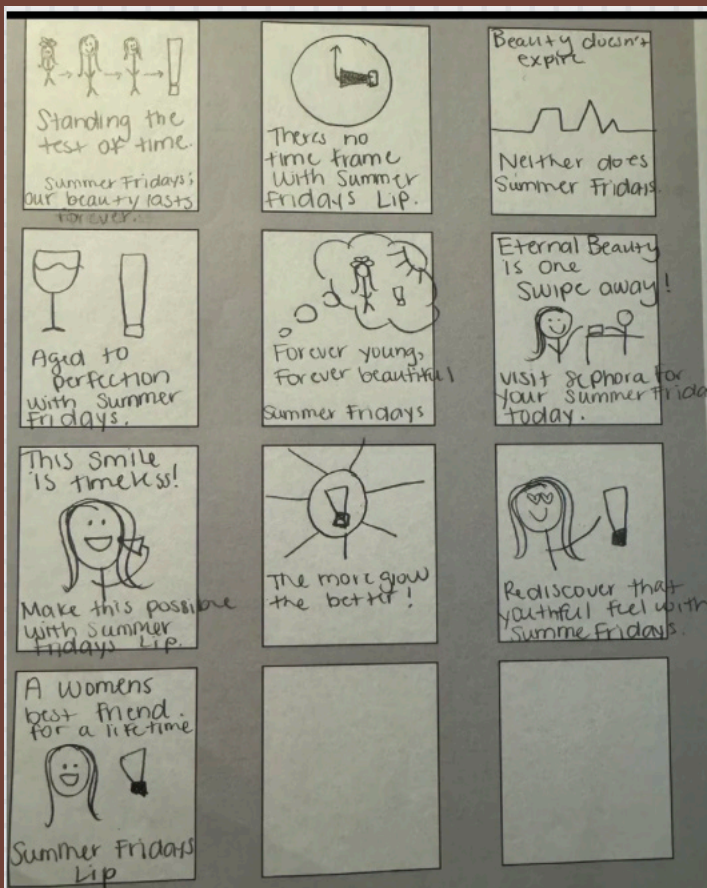 Standing the
test of time.
Summer Fridays;
our beauty lasts
forever.
Theres no
time frame
with Summer
Fridays Lip.
Beauty doesn't
expire
Neither does
Summer Fridays.
Aged to
perfection
with Summer
Fridays.
Forever young,
Forever beautiful
Summer Fridays
Eternal Beauty
is one
swipe away!
visit Sephora for
your Summer Frida
today.
This smile
is timeless!
Make this possible
with Summer
Fridays Lip.
The more glow
the better!
Rediscover that
youthful feel with
Summe Fridays.
A womens
best friend.
for a lifetime
Summer Fridays
Lip